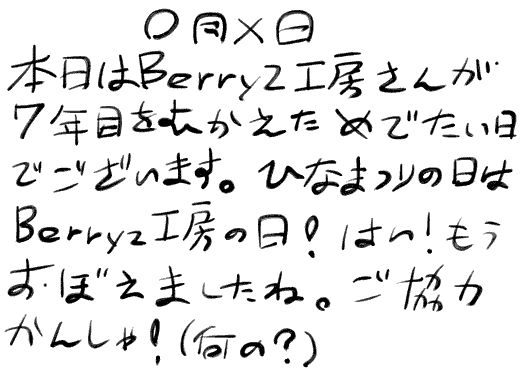 〇月×日
本日はBerryz工房さんが
7年目をむかえためでたい日
でございます。ひなまつりの日は
Berryz工房の日!はい!もう
おぼえましたね。ご協力
かんしゃ!(何の?)